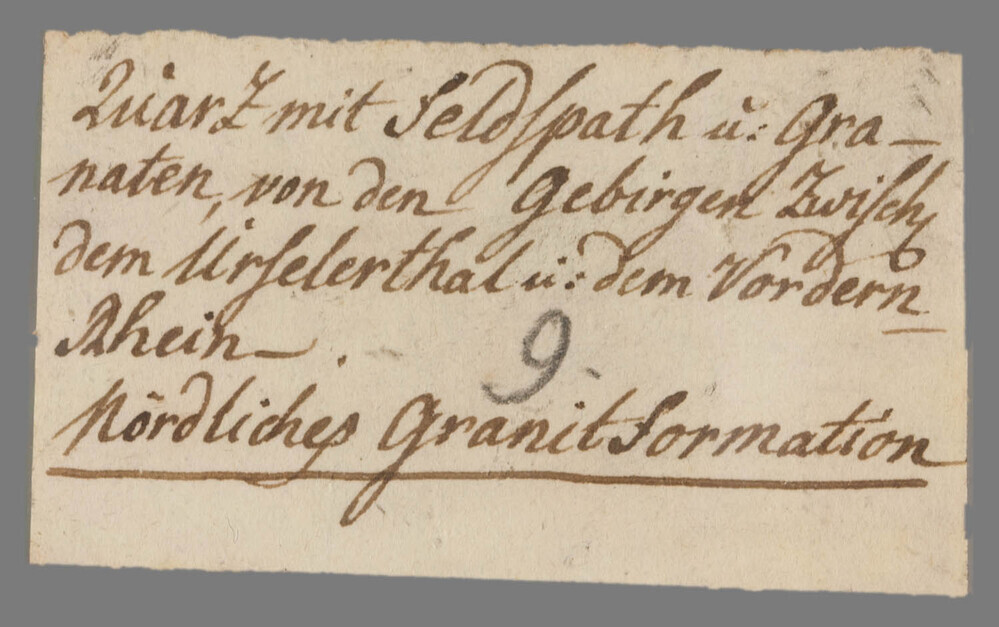 Quarz mit Feldspath u: Gra-
naten, von den Gebirgen Zwisch
dem Urselerthal u: dem Vordern
Rhein.
9.
Nördliches Granit Formation